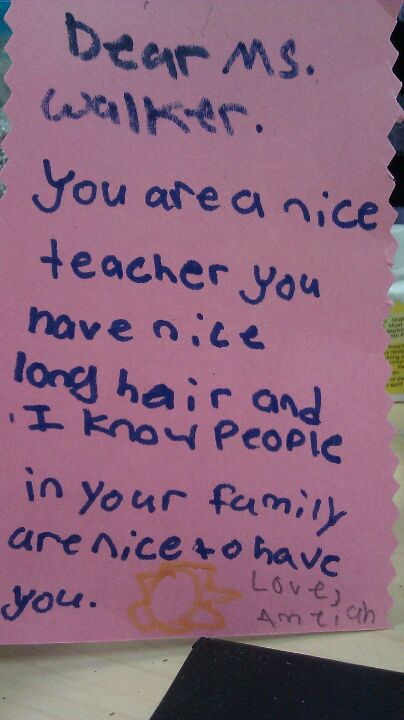 Dear Ms.
Walker.
You are a nice
teacher you
have nice
long hair and
I know People
in your family
are nice to have
you.
Love,